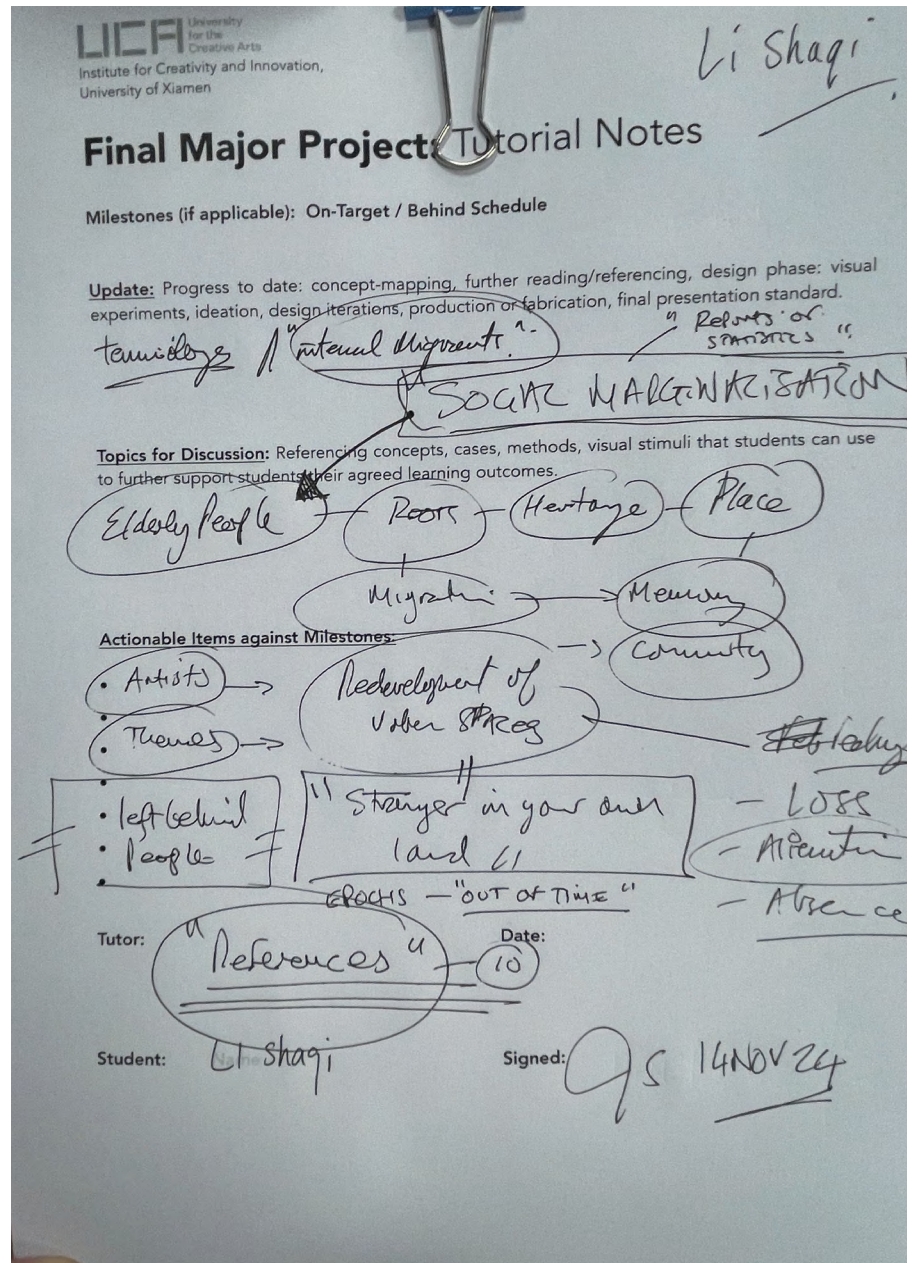 UCA University
for the
Creative Arts
Institute for Creativity and Innovation,
University of Xiamen
Li Shaqi
Final Major Project: Tutorial Notes
Milestones (if applicable): On-Target / Behind Schedule
Update: Progress to date: concept-mapping, further reading/referencing, design phase: visual
experiments, ideation, design iterations, production or fabrication, final presentation standard.
"Reports or
STATISTICS"
"internal Migrants".
"SOCIAL MARGINALISATION
Topics for Discussion: Referencing concepts, cases, methods, visual stimuli that students can use
to further support students their agreed learning outcomes.
Elderly People Roots Heritage Place
Migration Memory
Actionable Items against Milestones:
Community
• Artists Redevelopment of
• Themes Urban SPACES
• left behind
• People
- LOSS
- Alienation
- Absence
"Stranger" in your own
land"
EPOCHS - "OUT OF TIME"
Tutor: "References" - 10 Date:
Student: LI Shaqi Signed: 14 NOV 24